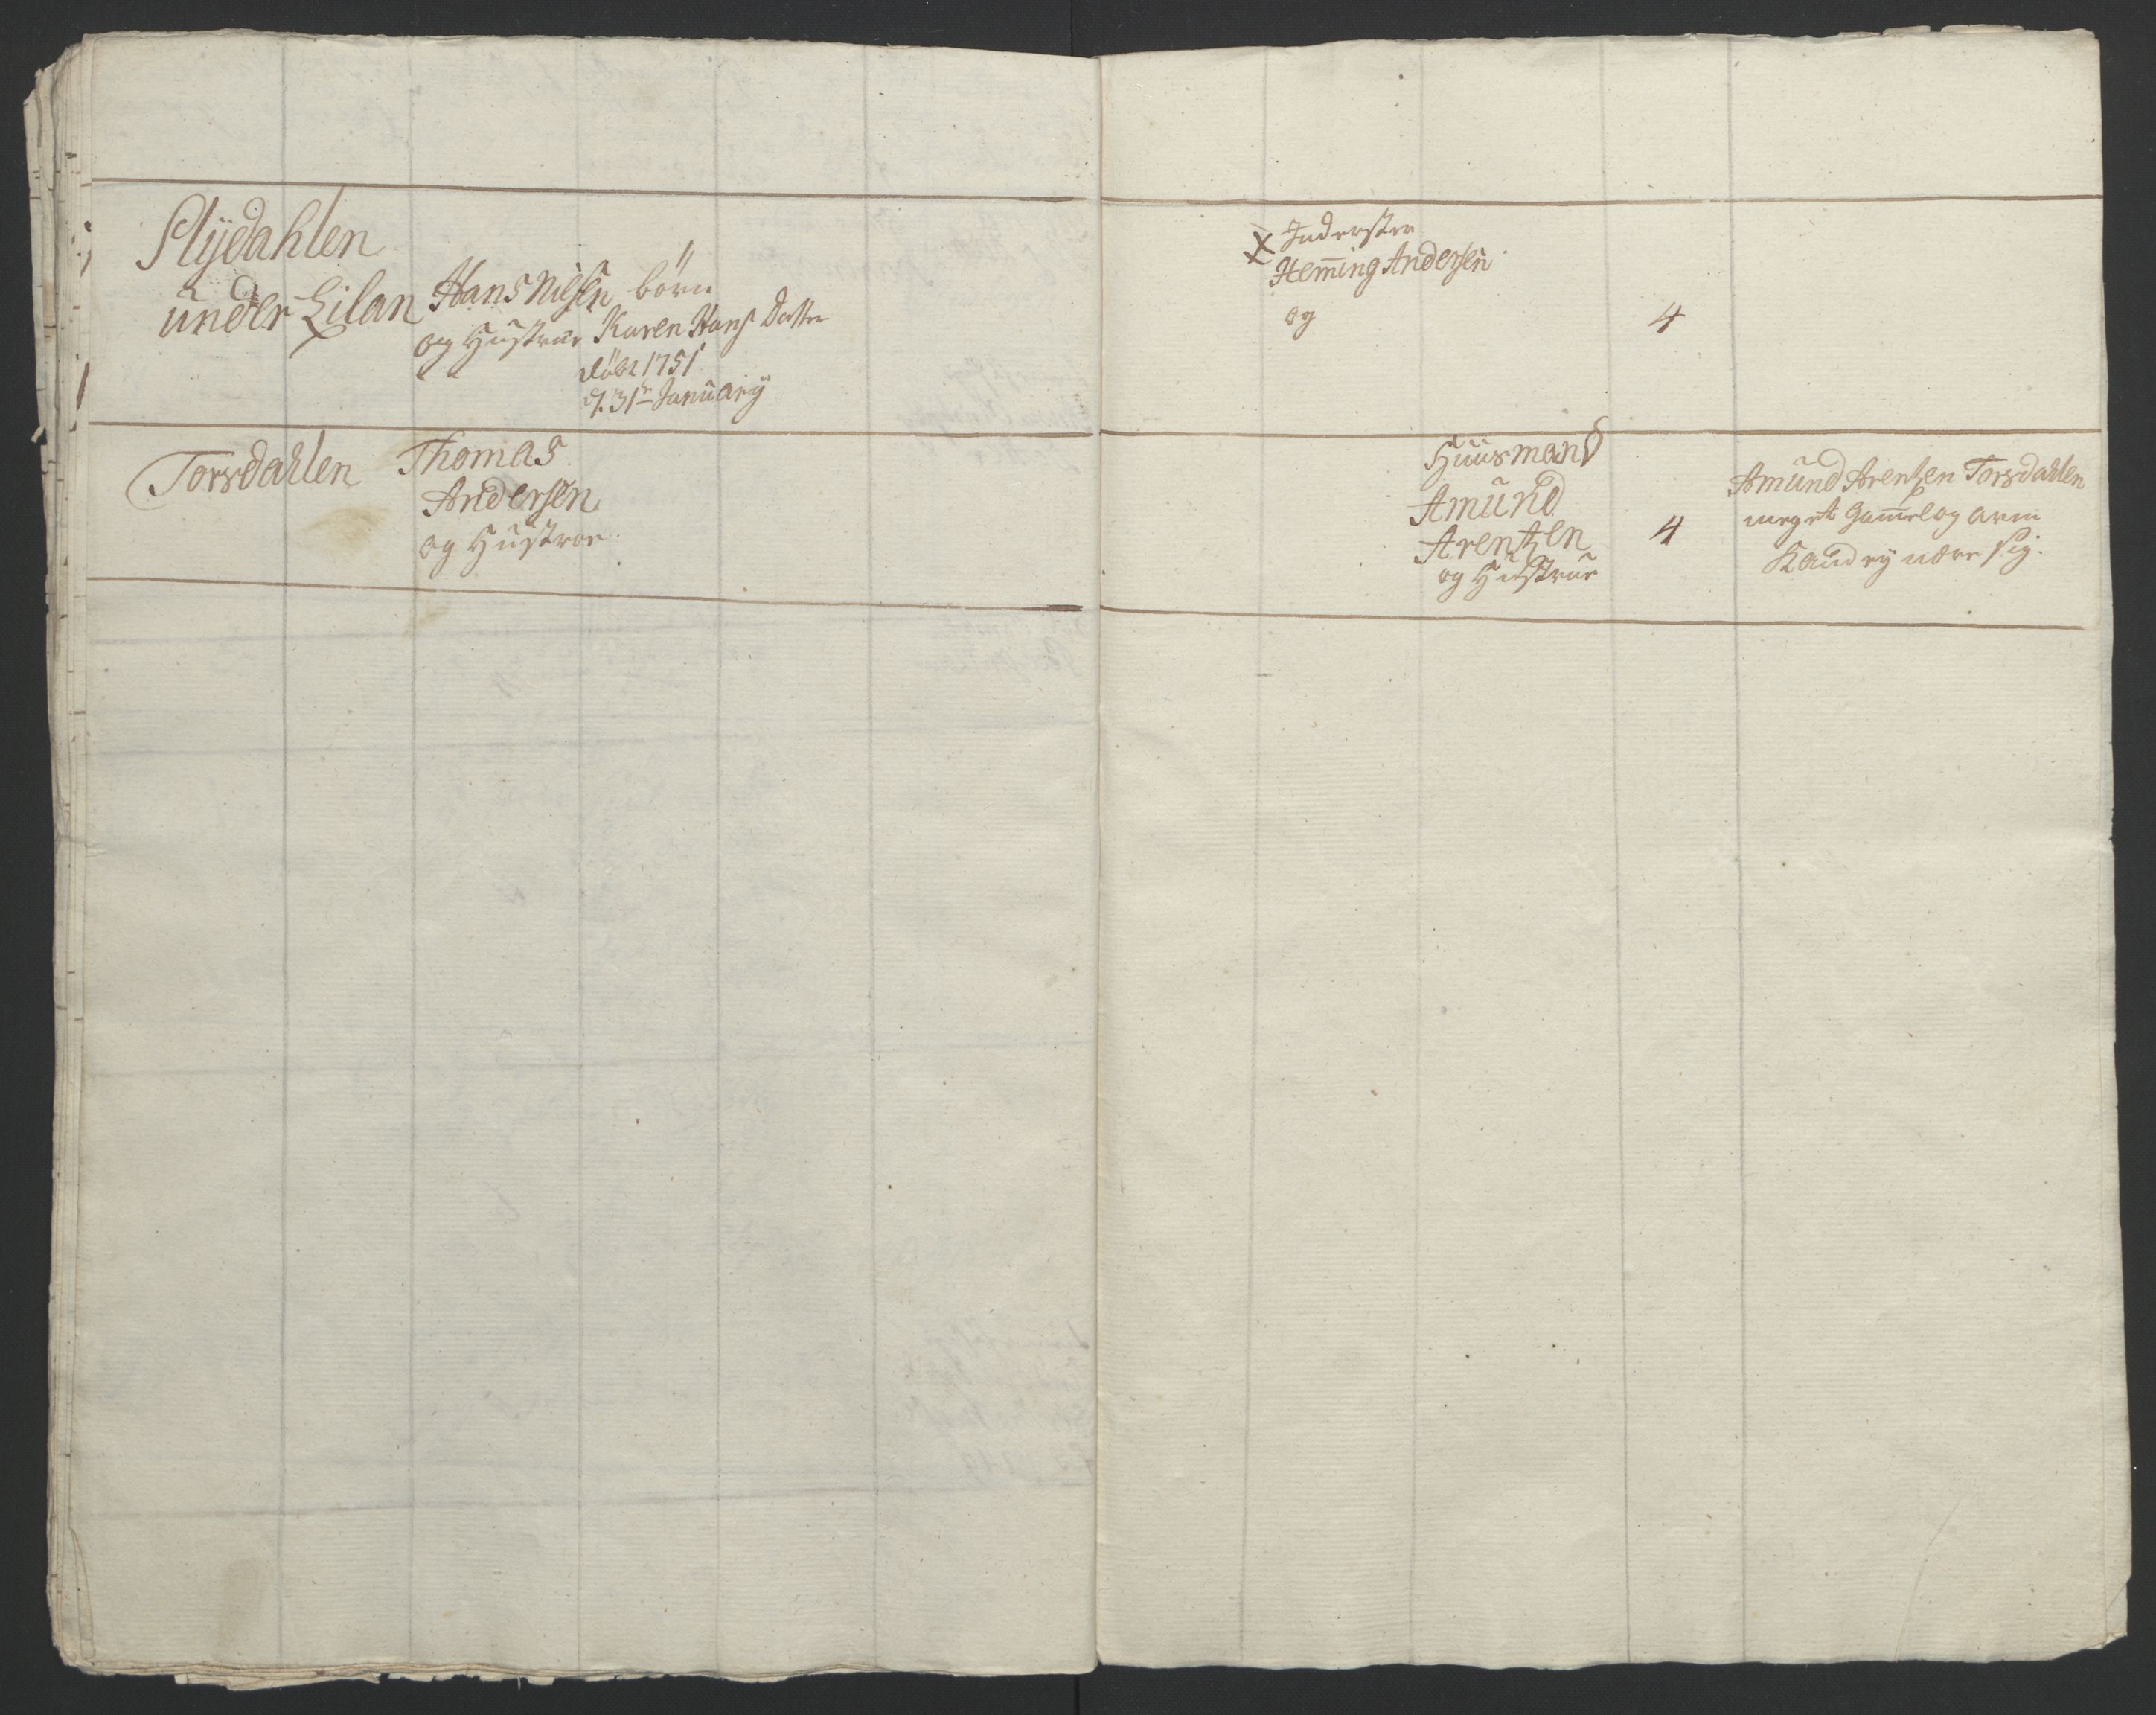 Slÿdahlen
ünder Lilan
Hans Nielsen
og Hüstrüe
börn
Karen Hans Datter
döbt 1751
d. 31te Januarÿ
x Inderster
Hem̅ing Andersen
og
4
Torsdahlen
Thomas
Andersen
og Hüstroe
Hüüsmand
Amünd
Arentzen
og Hüstrüe
4
Amünd Arentzen Torsdahlen
meget Gam̅el og arm
Kand eÿ nære sig.